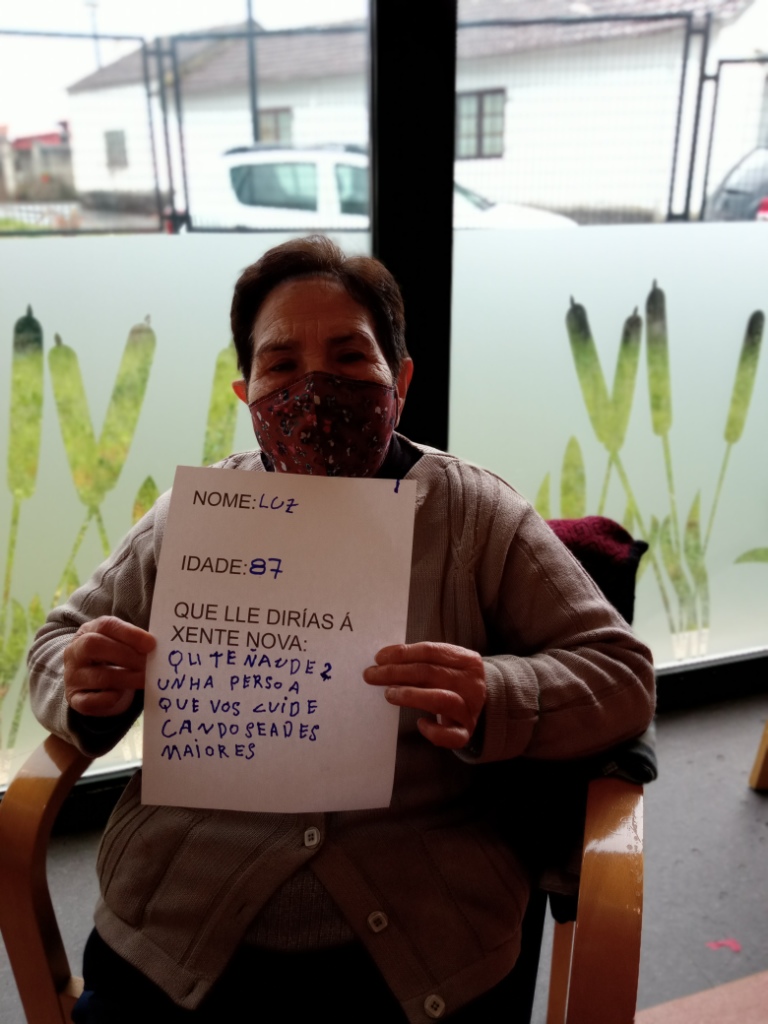 NOME: LUZ
IDADE: 87
QUE LLE DIRÍAS Á
XENTE NOVA:
QUTEÑADES
UNHA PERSOA
QUE VOS CUIDE
CANDOSEADES
MAIORES